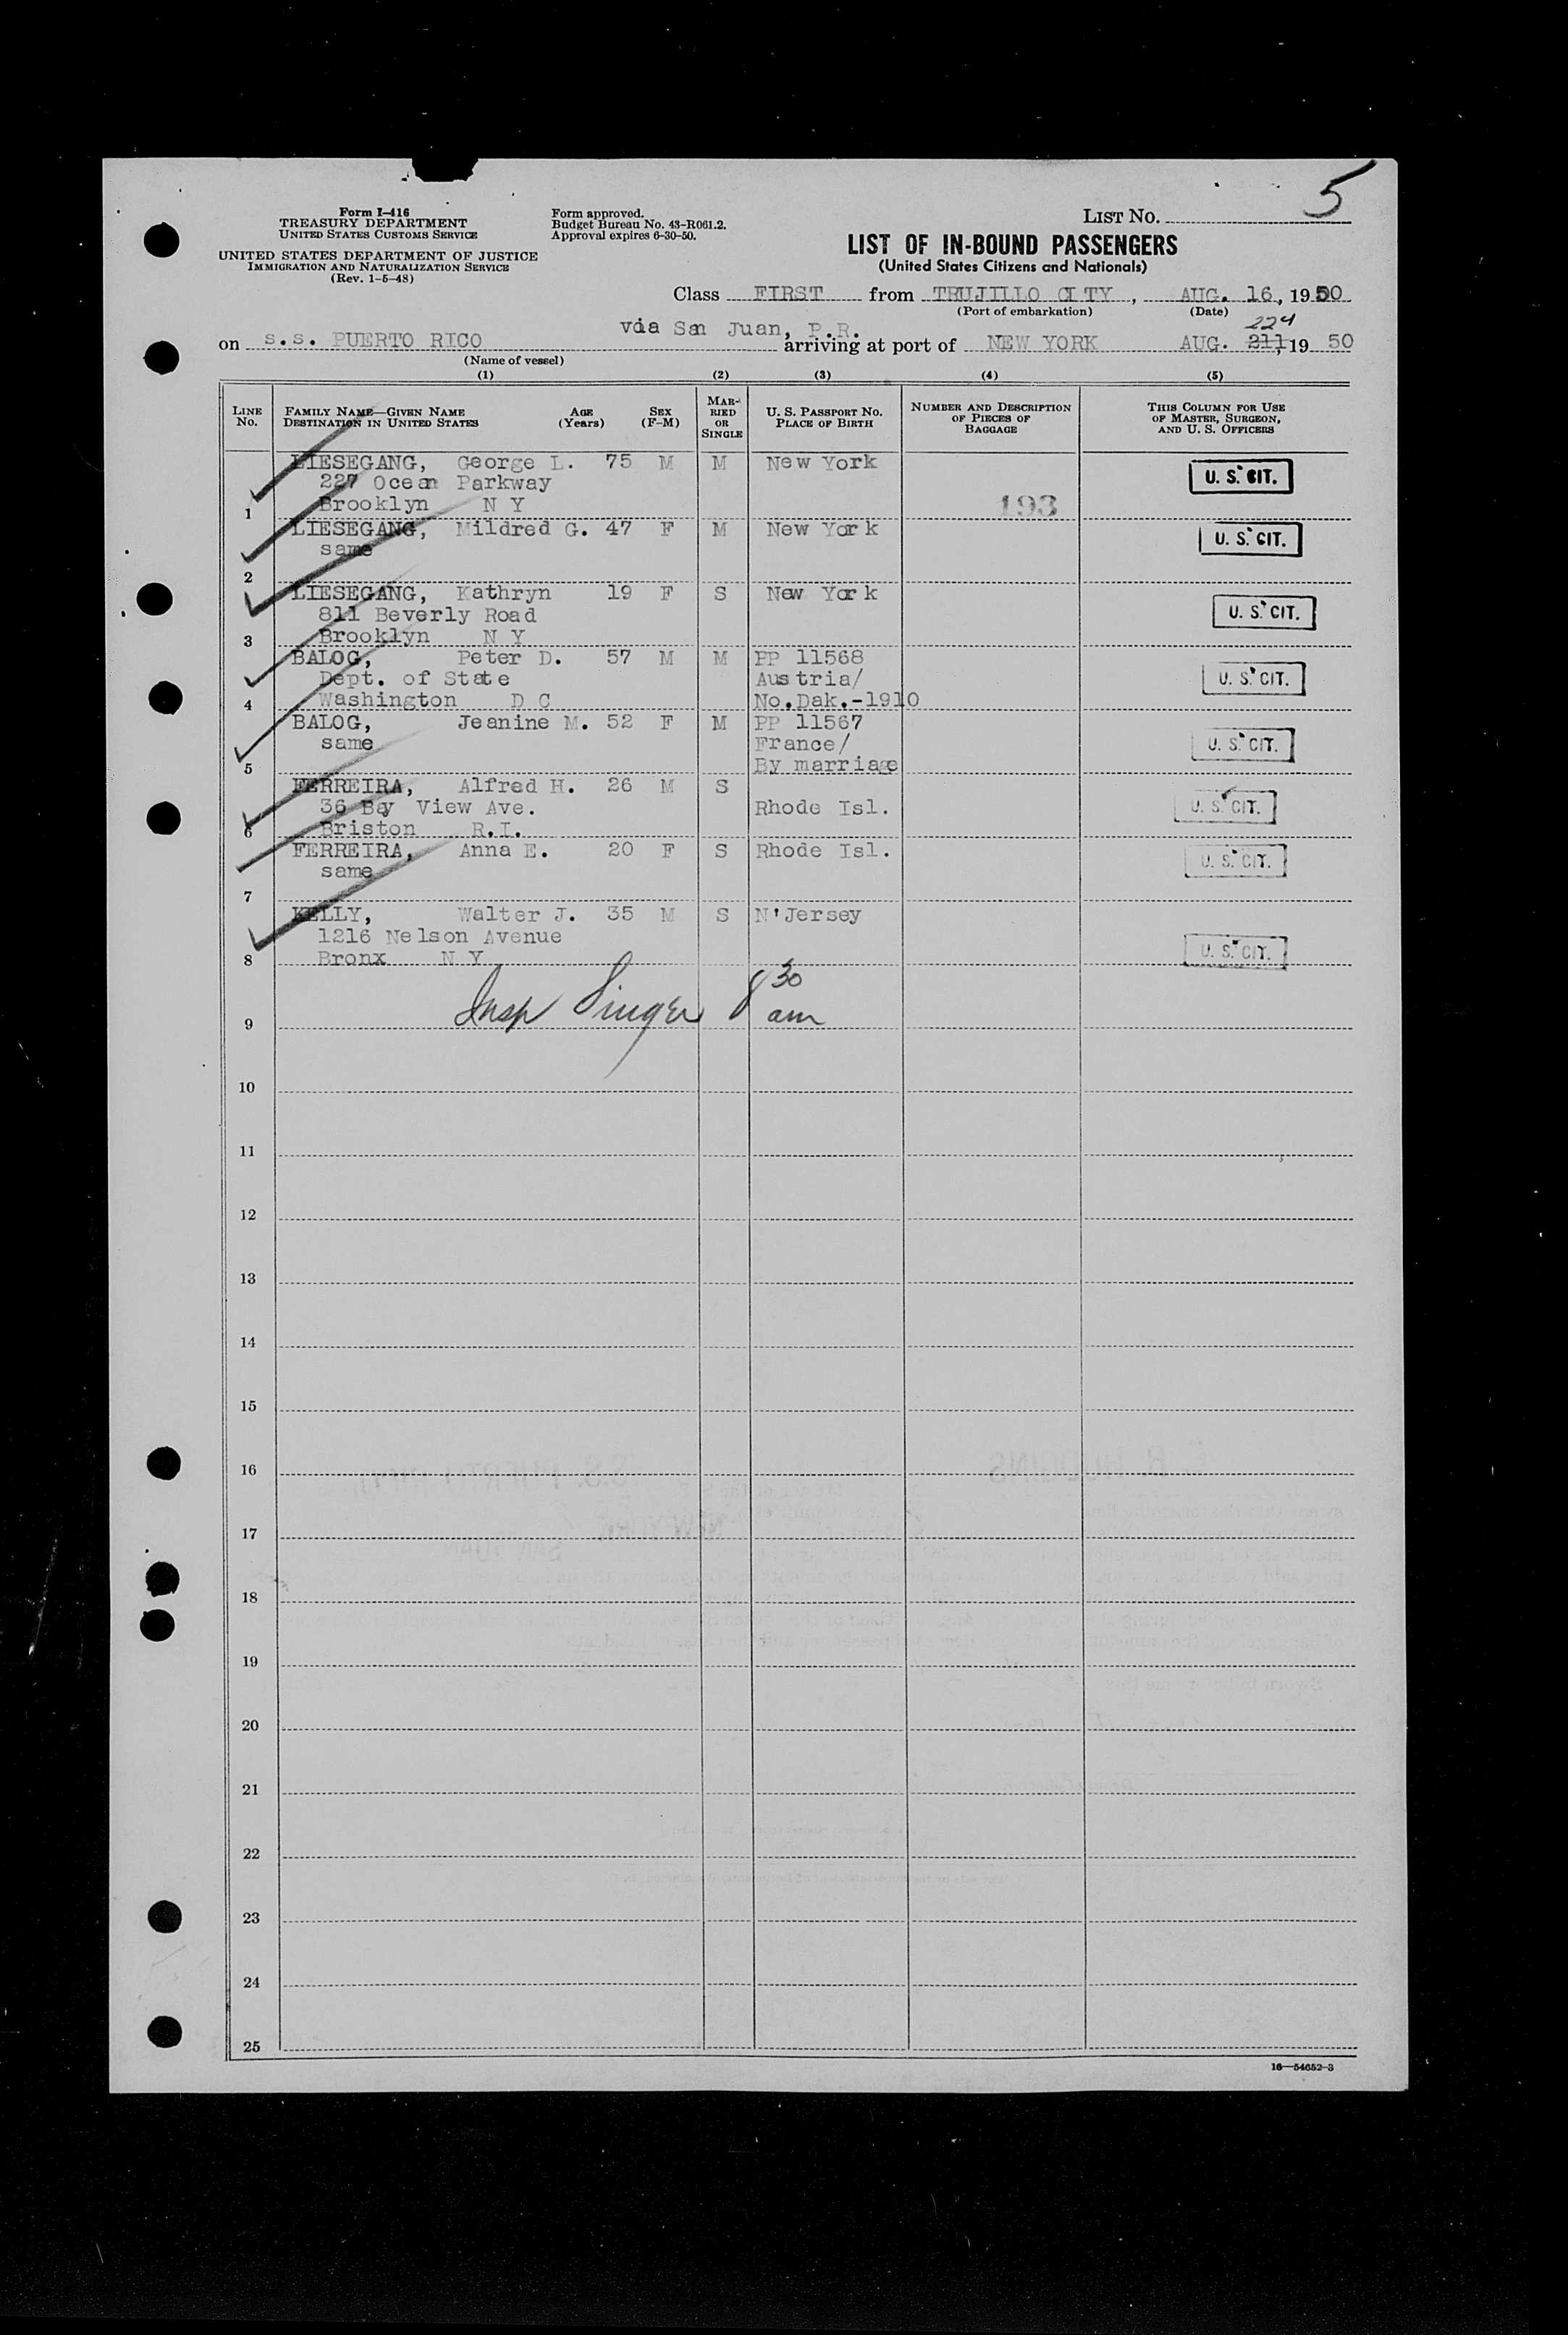 5
Form I-416
TREASURY DEPARTMENT
UNITED STATES CUSTOMS SERVICE
UNITED STATES DEPARTMENT OF JUSTICE
IMMIGRATION AND NATURALIZATION SERVICE
(Rev. 1-5-48)
Form approved.
Budget Bureau No. 43-R061.2.
Approval expires 6-30-50.
LIST NO.
LIST OF IN-BOUND PASSENGERS
(United States Citizens and Nationals)
Class FIRST from TRUJILLO CITY, AUG. 16, 1950
(Port of embarkation) (Date)
via San Juan, P.R.
on s.s. PUERTO RICO arriving at port of NEW YORK AUG. 1950
(Name of vessel)
(1) (2) (3) (4) (5)
LINE No. FAMILY NAME—GIVEN NAME DESTINATION IN UNITED STATES AGE (Years) SEX (F-M) MARRIED OR SINGLE U. S. PASSPORT NO. PLACE OF BIRTH NUMBER AND DESCRIPTION OF PIECES OF BAGGAGE THIS COLUMN FOR USE OF MASTER, SURGEON, AND U. S. OFFICERS
LIESEGANG, George L. 75 M M New York U. S. CIT.
227 Ocean Parkway
1 Brooklyn N Y 193
LIESEGANG, Mildred G. 47 F M New York U. S. CIT.
same
2
LIESEGANG, Kathryn 19 F S New York U. S. CIT.
811 Beverly Road
3 Brooklyn N Y
BALOG, Peter D. 57 M M PP 11568
Dept. of State Austria/ U. S. CIT.
4 Washington D C No.Dak.-1910
BALOG, Jeanine M. 52 F M PP 11567
same France/ U. S. CIT.
5 By marriage
FERREIRA, Alfred H. 26 M S
36 Bay View Ave. Rhode Isl. U. S. CIT.
6 Briston R.I.
FERREIRA, Anna E. 20 F S Rhode Isl. U. S. CIT.
same
7
KELLY, Walter J. 35 M S N'Jersey
1216 Nelson Avenue
8 Bronx N Y U. S. CIT.
Insp Singer 8 30 am
9
10
11
12
13
14
15
16
17
18
19
20
21
22
23
24
25
16—54652-3